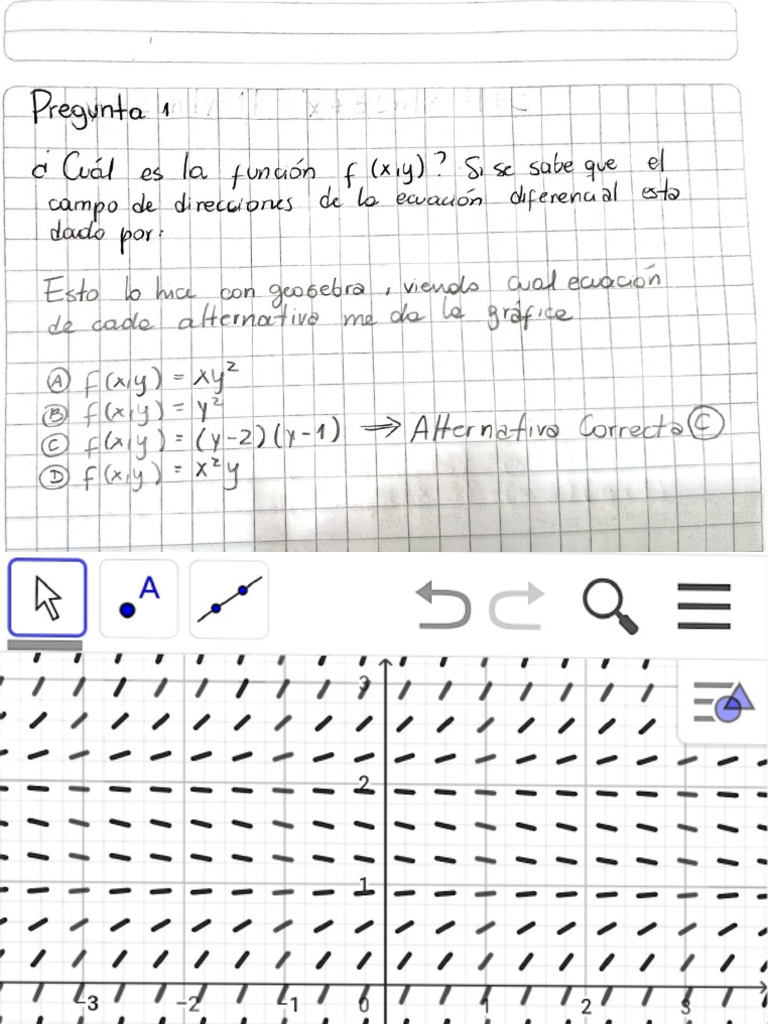 Pregunta 1
¿Cuál es la función f(x,y)? Si se sabe que el
campo de direcciones de la ecuación diferencial esta
dado por:
Esto lo hice con geogebra, viendo cual ecuación
de cada alternativa me da la gráfica
A f(x,y) = xy²
B f(x,y) = y²
C f(x,y) = (y-2)(y-1) ⟹ Alternativa Correcta C
D f(x,y) = x²y
A
3
2
1
-3 -2 -1 0 1 2 3